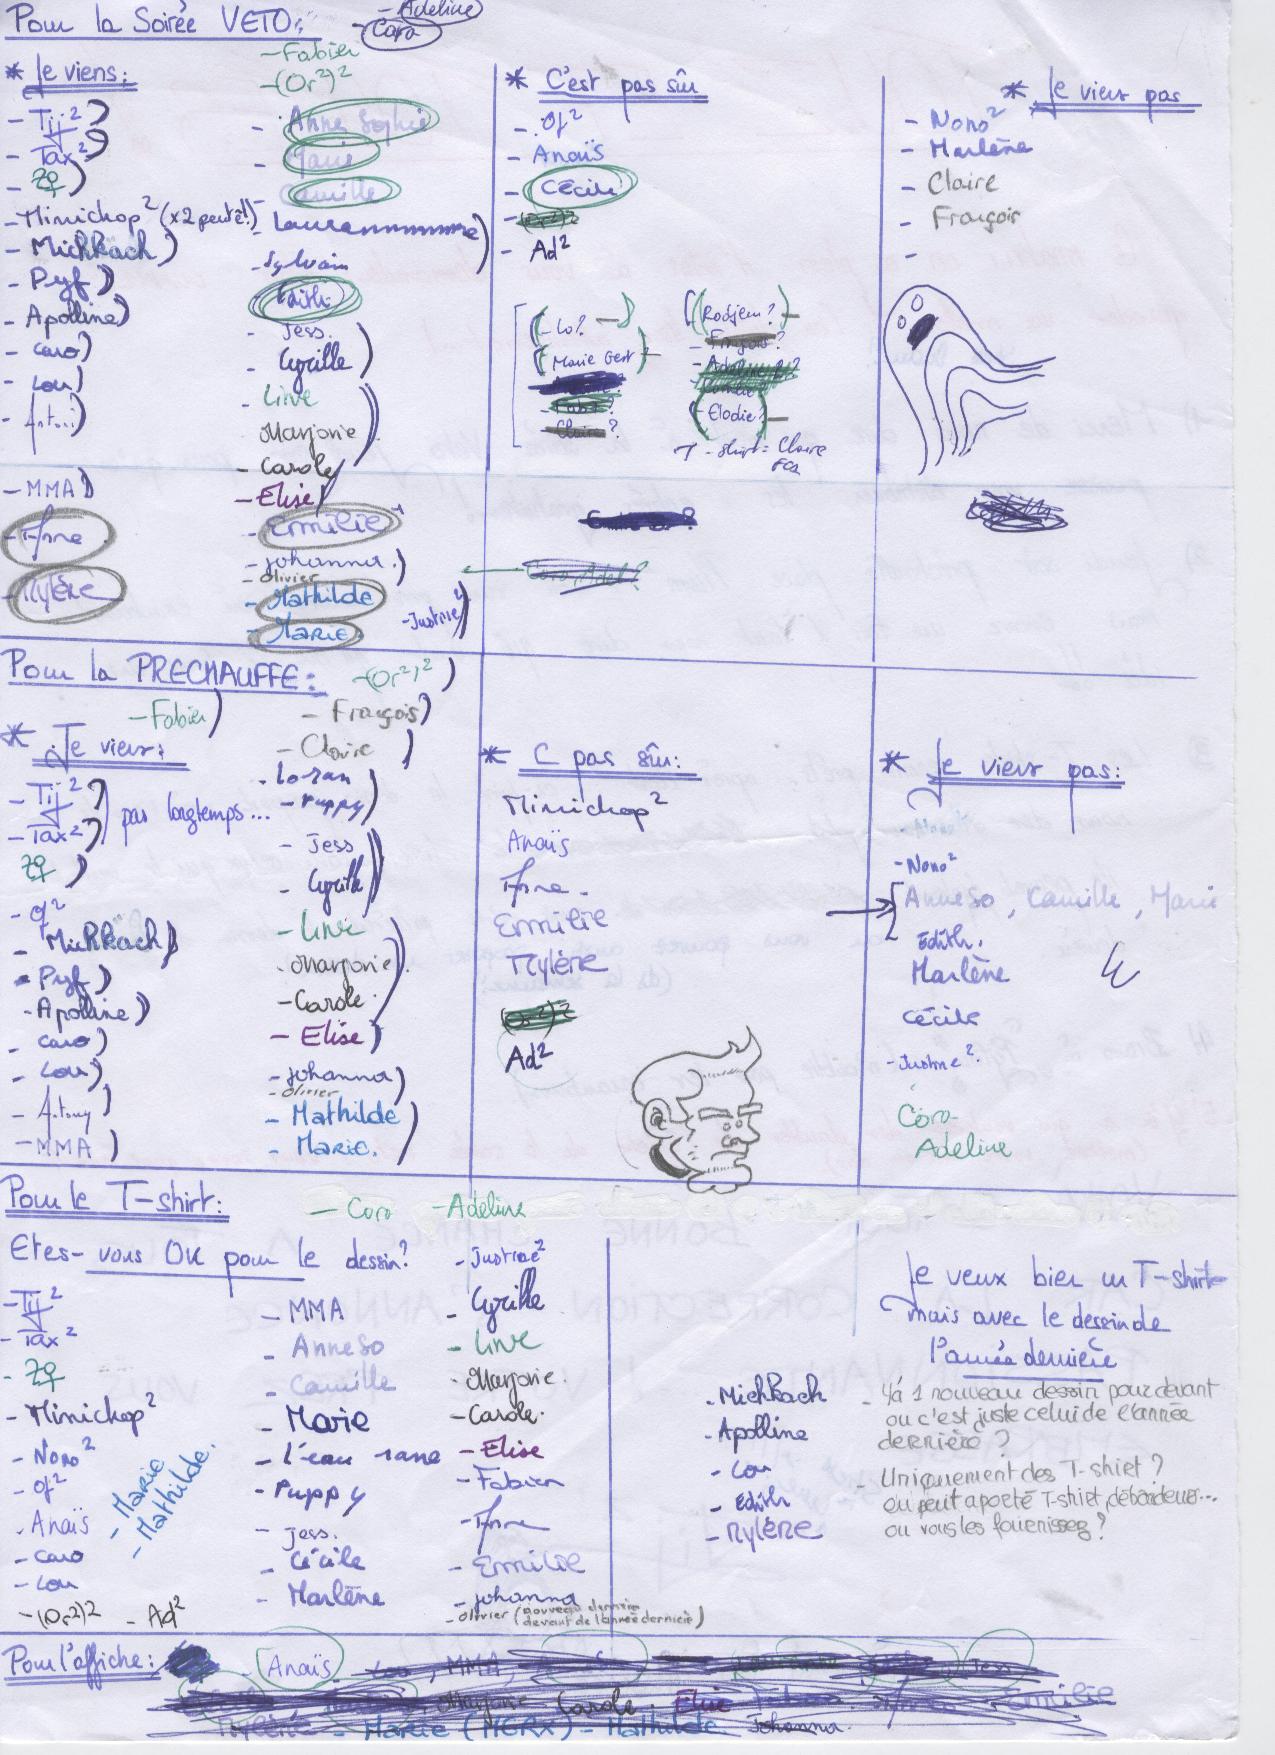 Pour la Soirée VETO:
- Adeline
- Coro
* Je viens:
- Tij²)
- Tax²)
- Mimichop² (x2 peutê!)
- MichKach)
- Pyf)
- Apolline)
- caro)
- Lou)
- Antoni)
- MMA)
- Anne
- Mylène
- Fabien
- (Or²)²
- Anne Sophie
- Marie
- Camille
- Laurannnnnnne)
- Sylvain
- Edith
- Jess.
- Cyrille)
- Line
- Marjorie
- Carole
- Elise
- Emilie
- johanna.)
- olivier
- Mathilde
- Marie.
- Justine²)
* C'est pas sûr
- Of²
- Anaïs
- Cécile
- (Or²)²
- Ad²
(- Lo? -)
(Marie Gert)-
- Claire?
(Rodjem?)-
- François?
- Adeline?
(- Elodie?)-
T-shirt = Claire
* Je viens pas
- Nono²
- Marlène
- Claire
- François
-
Coro, Adel?
Pour la PRECHAUFFE:
- (Or²)²)
- Fabien)
* Je viens:
- Tij²)
- Tax²) pas longtemps...
- Of²
- MichKach)
- Pyf)
- Apolline)
- caro)
- Lou)
- Antony)
- MMA)
- François)
- Claire)
- Loran
- Puppy)
- Jess
- Cyrille
- Line
- Marjorie
- Carole.
- Elise)
- johanna)
- olivier
- Mathilde
- Marie.
* C pas sûr:
Mimichop²
Anaïs
Anne -
Emilie
Mylène
(Or²)²
Ad²
* Je viens pas:
- Nono²
Anneso, Camille, Marie
Edith.
Marlène
Cécile
- Justine².
Coro-
Adeline
Pour le T-shirt:
- Coro - Adeline
Etes-vous OK pour le dessin?
- Tij²
- Tax²
- Mimichop²
- Nono²
- Of²
- Anaïs
- caro
- Lou
- (Or²)² - Ad²
- Marie
- Mathilde.
- MMA
- Anneso
- Camille
- Marie
- L'eau rane
- Puppy
- Jess.
- Cécile
- Marlène
- Justine²
- Cyrille
- Line
- Marjorie.
- Carole.
- Elise
- Fabien
- Anne
- Emilie
- johanna
- olivier (nouveau derrière
devant de l'année dernière)
Je veux bien un T-shirt
mais avec le dessin de
l'année dernière
- MichKach
- Apolline
- Lou
- Edith
- Mylène
- Y'à 1 nouveau dessin pour devant
ou c'est juste celui de l'année
dernière?
- Uniquement des T-shirt?
ou peut aporté T-shirt, débardeur...
ou vous les fournissez?
Pour l'affiche:
- Anaïs - Lou, MMA, Jess
Marjorie - Carole. Elise Emilie
Mylène - Marie (MERX) - Mathilde Johanna.